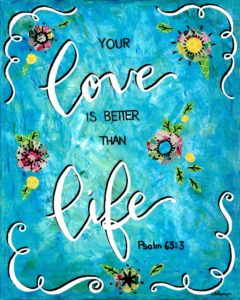 YOUR
love
IS BETTER
THAN
life
Psalm 63:3